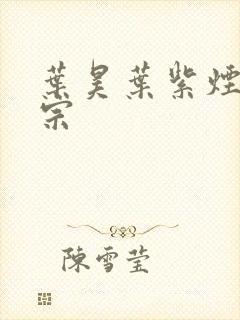 葉昊葉紫煙
宗
陳雪莹